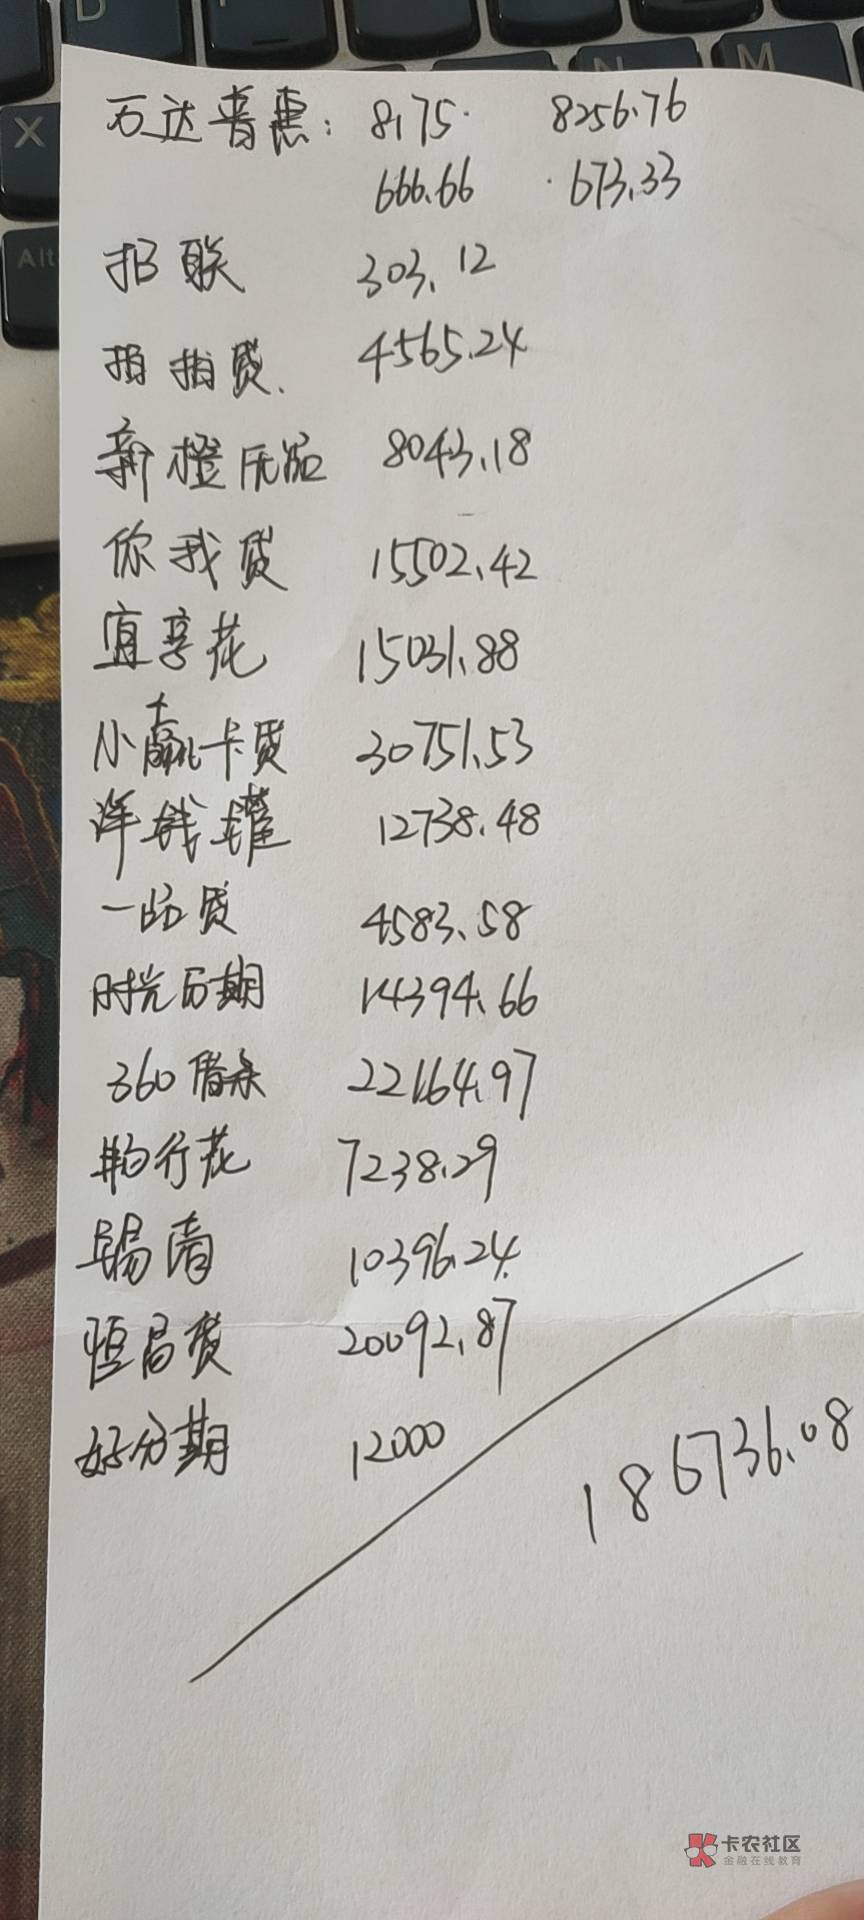 D
X
N
M
Alt
万达普惠: 8175. 8256.76
666.66 673.33
招联 303.12
拍拍贷. 4565.24
新橙优品 8043.18
你我贷 15502.42
宜享花 15031.88
小赢卡贷 30751.53
洋钱罐 12738.48
一品贷 4583.58
时光分期 14394.66
360借条 22164.97
鹁行花 7238.29
锡清 10396.24
恒昌贷 20092.87
好分期 12000
186736.08
卡农社区
金融在线教育